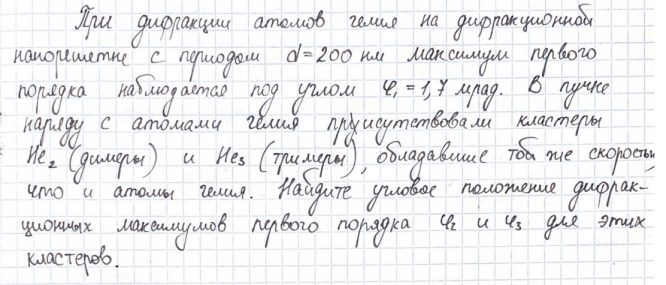 При дифракции атомов гелия на дифракционной
нанорешетке с периодом d=200 нм максимум первого
порядка наблюдается под углом φ₁=1,7 мрад. В пучке
наряду с атомами гелия присутствовали кластеры
He₂ (димеры) и He₃ (тримеры), обладавшие той же скоростью,
что и атомы гелия. Найдите угловое положение дифрак-
ционных максимумов первого порядка φ₂ и φ₃ для этих
кластеров.